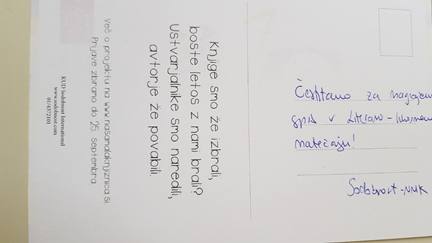 Knjige smo že izbrali,
boste letos z nami brali?
Ustvarjalnike smo naredili,
avtorje že povabili.
Več o projektu na www.nasamalaknjiznica.si
Prijave zbiramo do 25. septembra
KUD Sodobnost International
www.sodobnost.com
01/4372101
Čestitamo za nagrajen
spis v Literarno-likovnem
natečaju!
Sodobnost-NMK